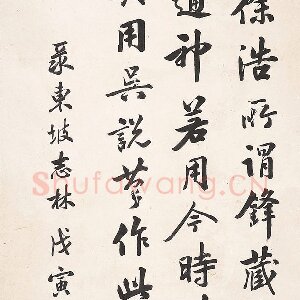 浩所謂鋒藏
神若用今時
用吳說筆作此
录東坡志林 戊寅
Shufawang.CN